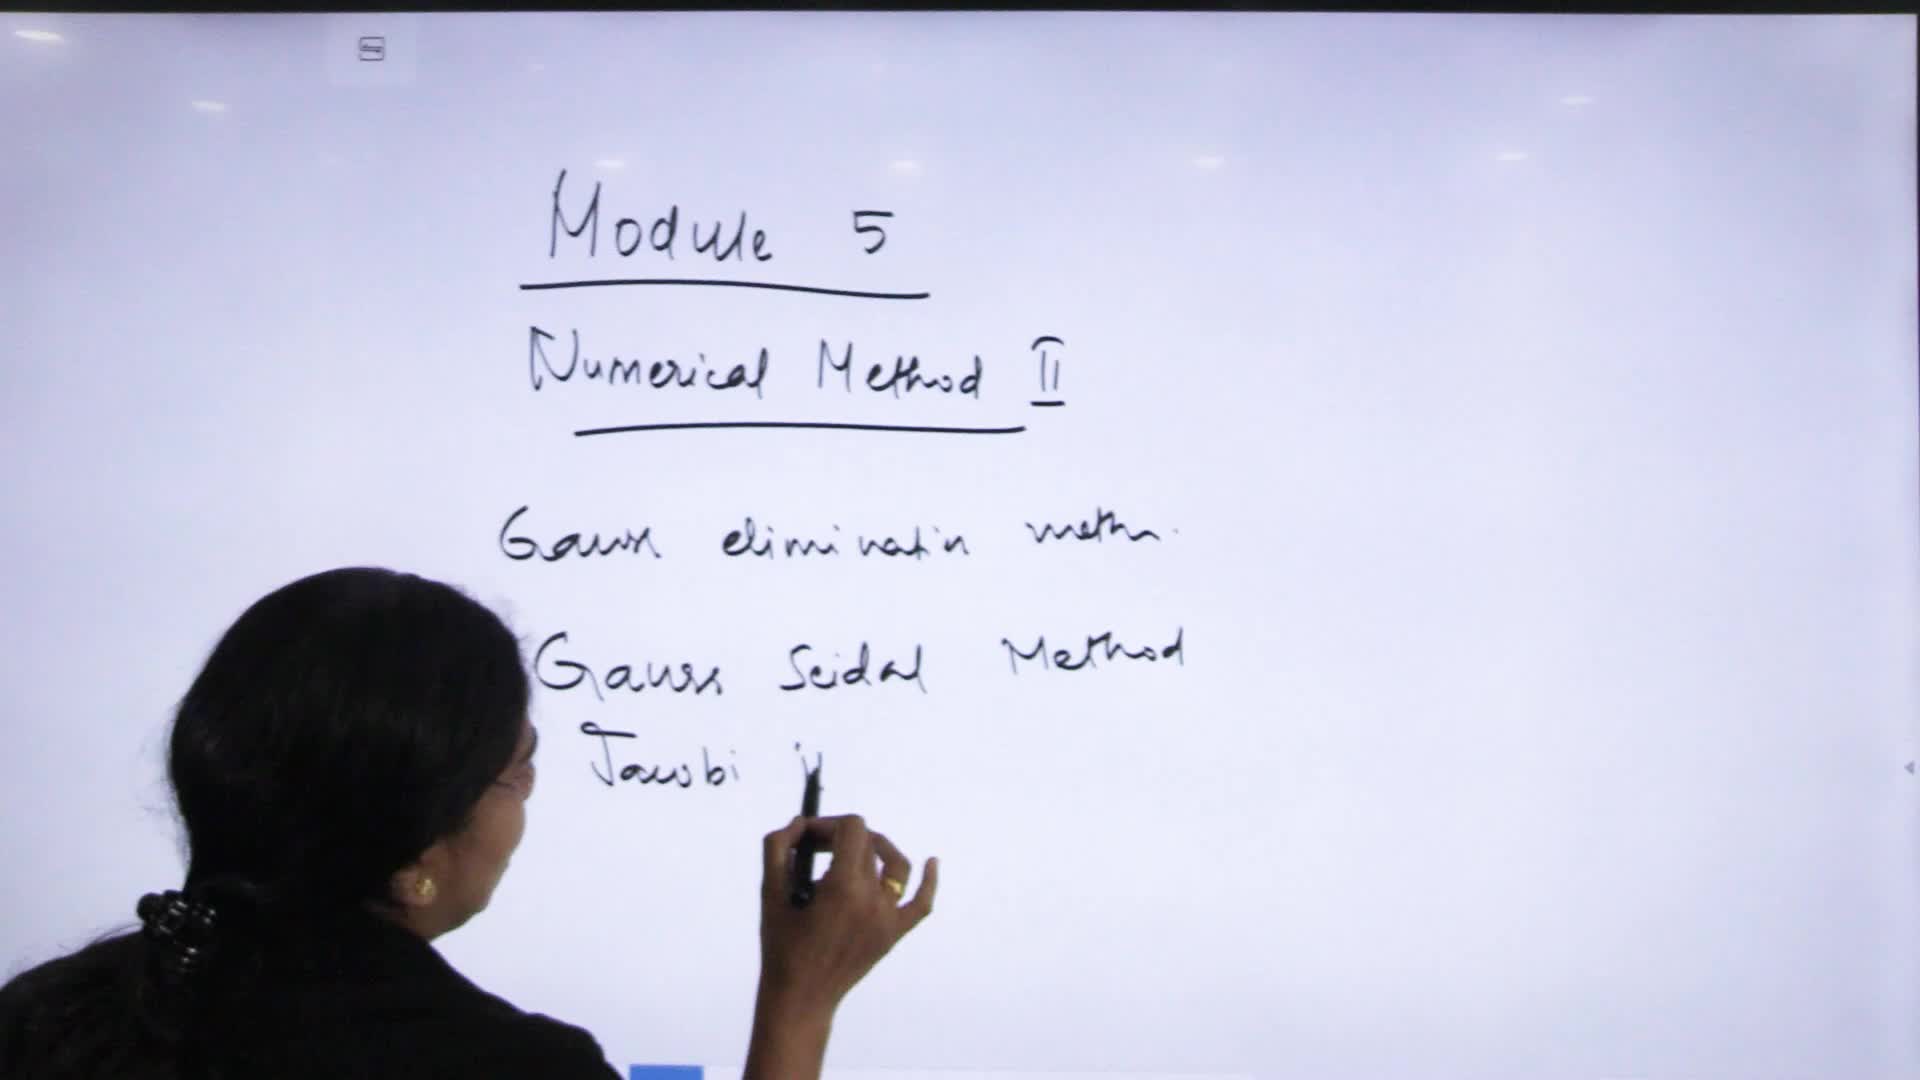 Module 5
Numerical Method II
Gauss elimination meth.
Gauss Seidal Method
Jacobi